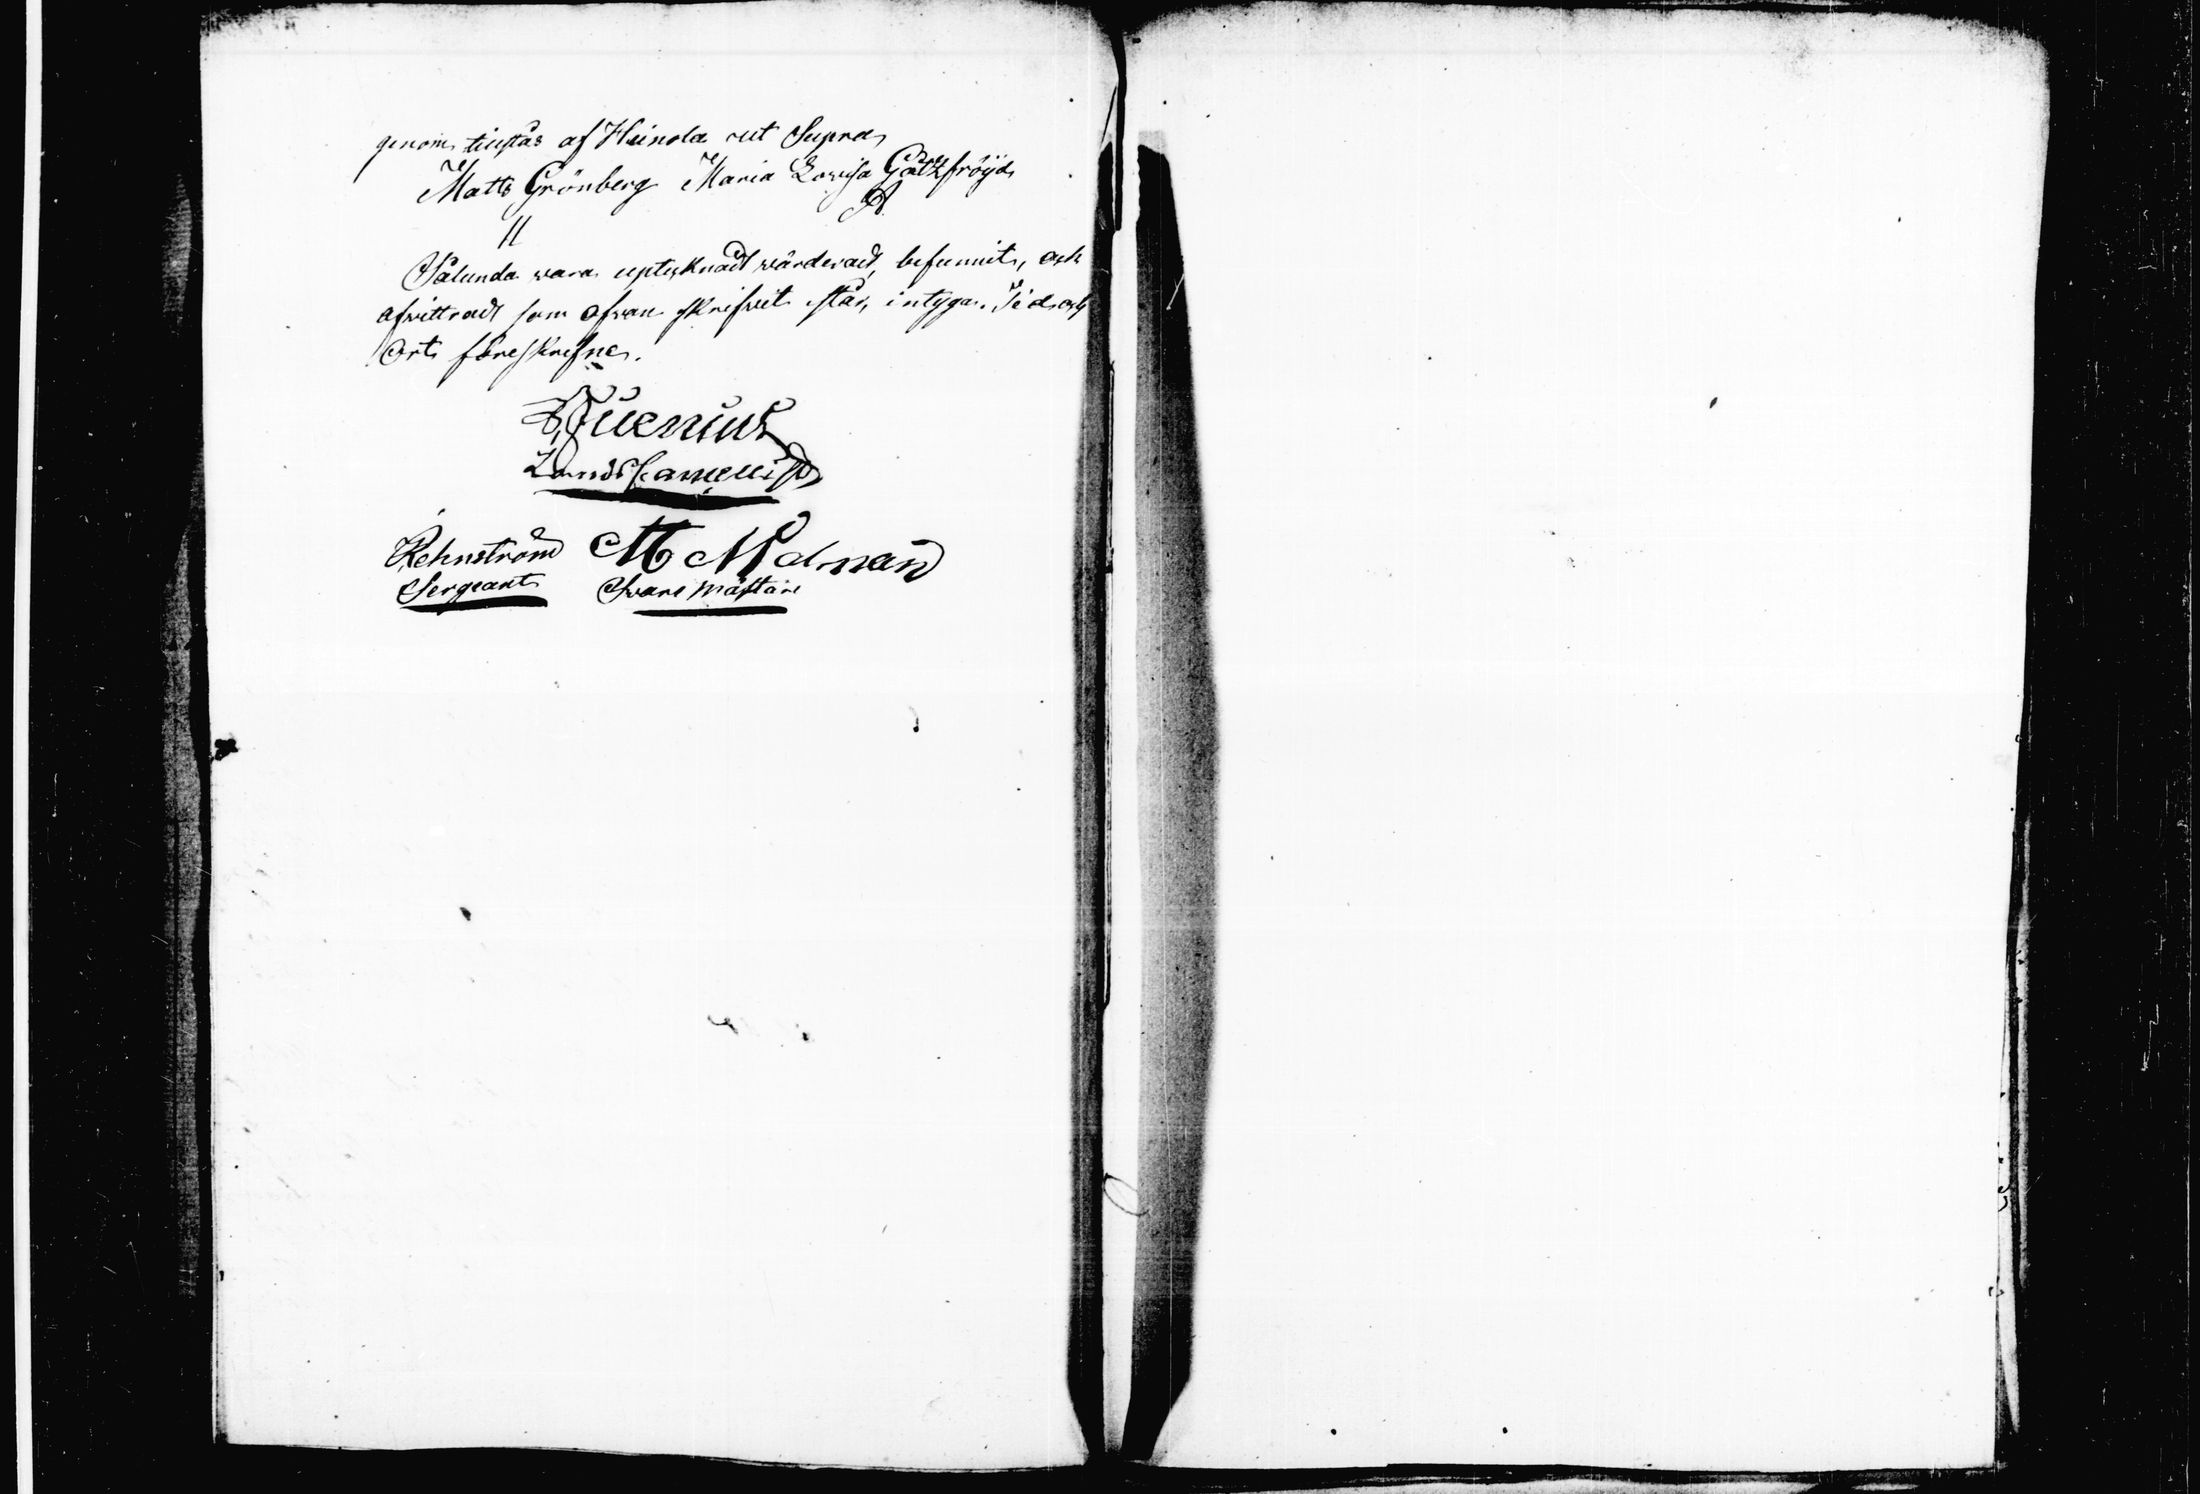 genom tilstås af Heinola ut Supra
Matts Grönberg Maria Lovisa Gottfröijd
Sålunda vara uptecknadt värderadt, befunnit, och
afvittradt som ofvan skrifvit står, intyga. Tid och
Ort föreskrefne.
Landscancellist
Rehnström M Malman
Sergeant Svarfvmästare